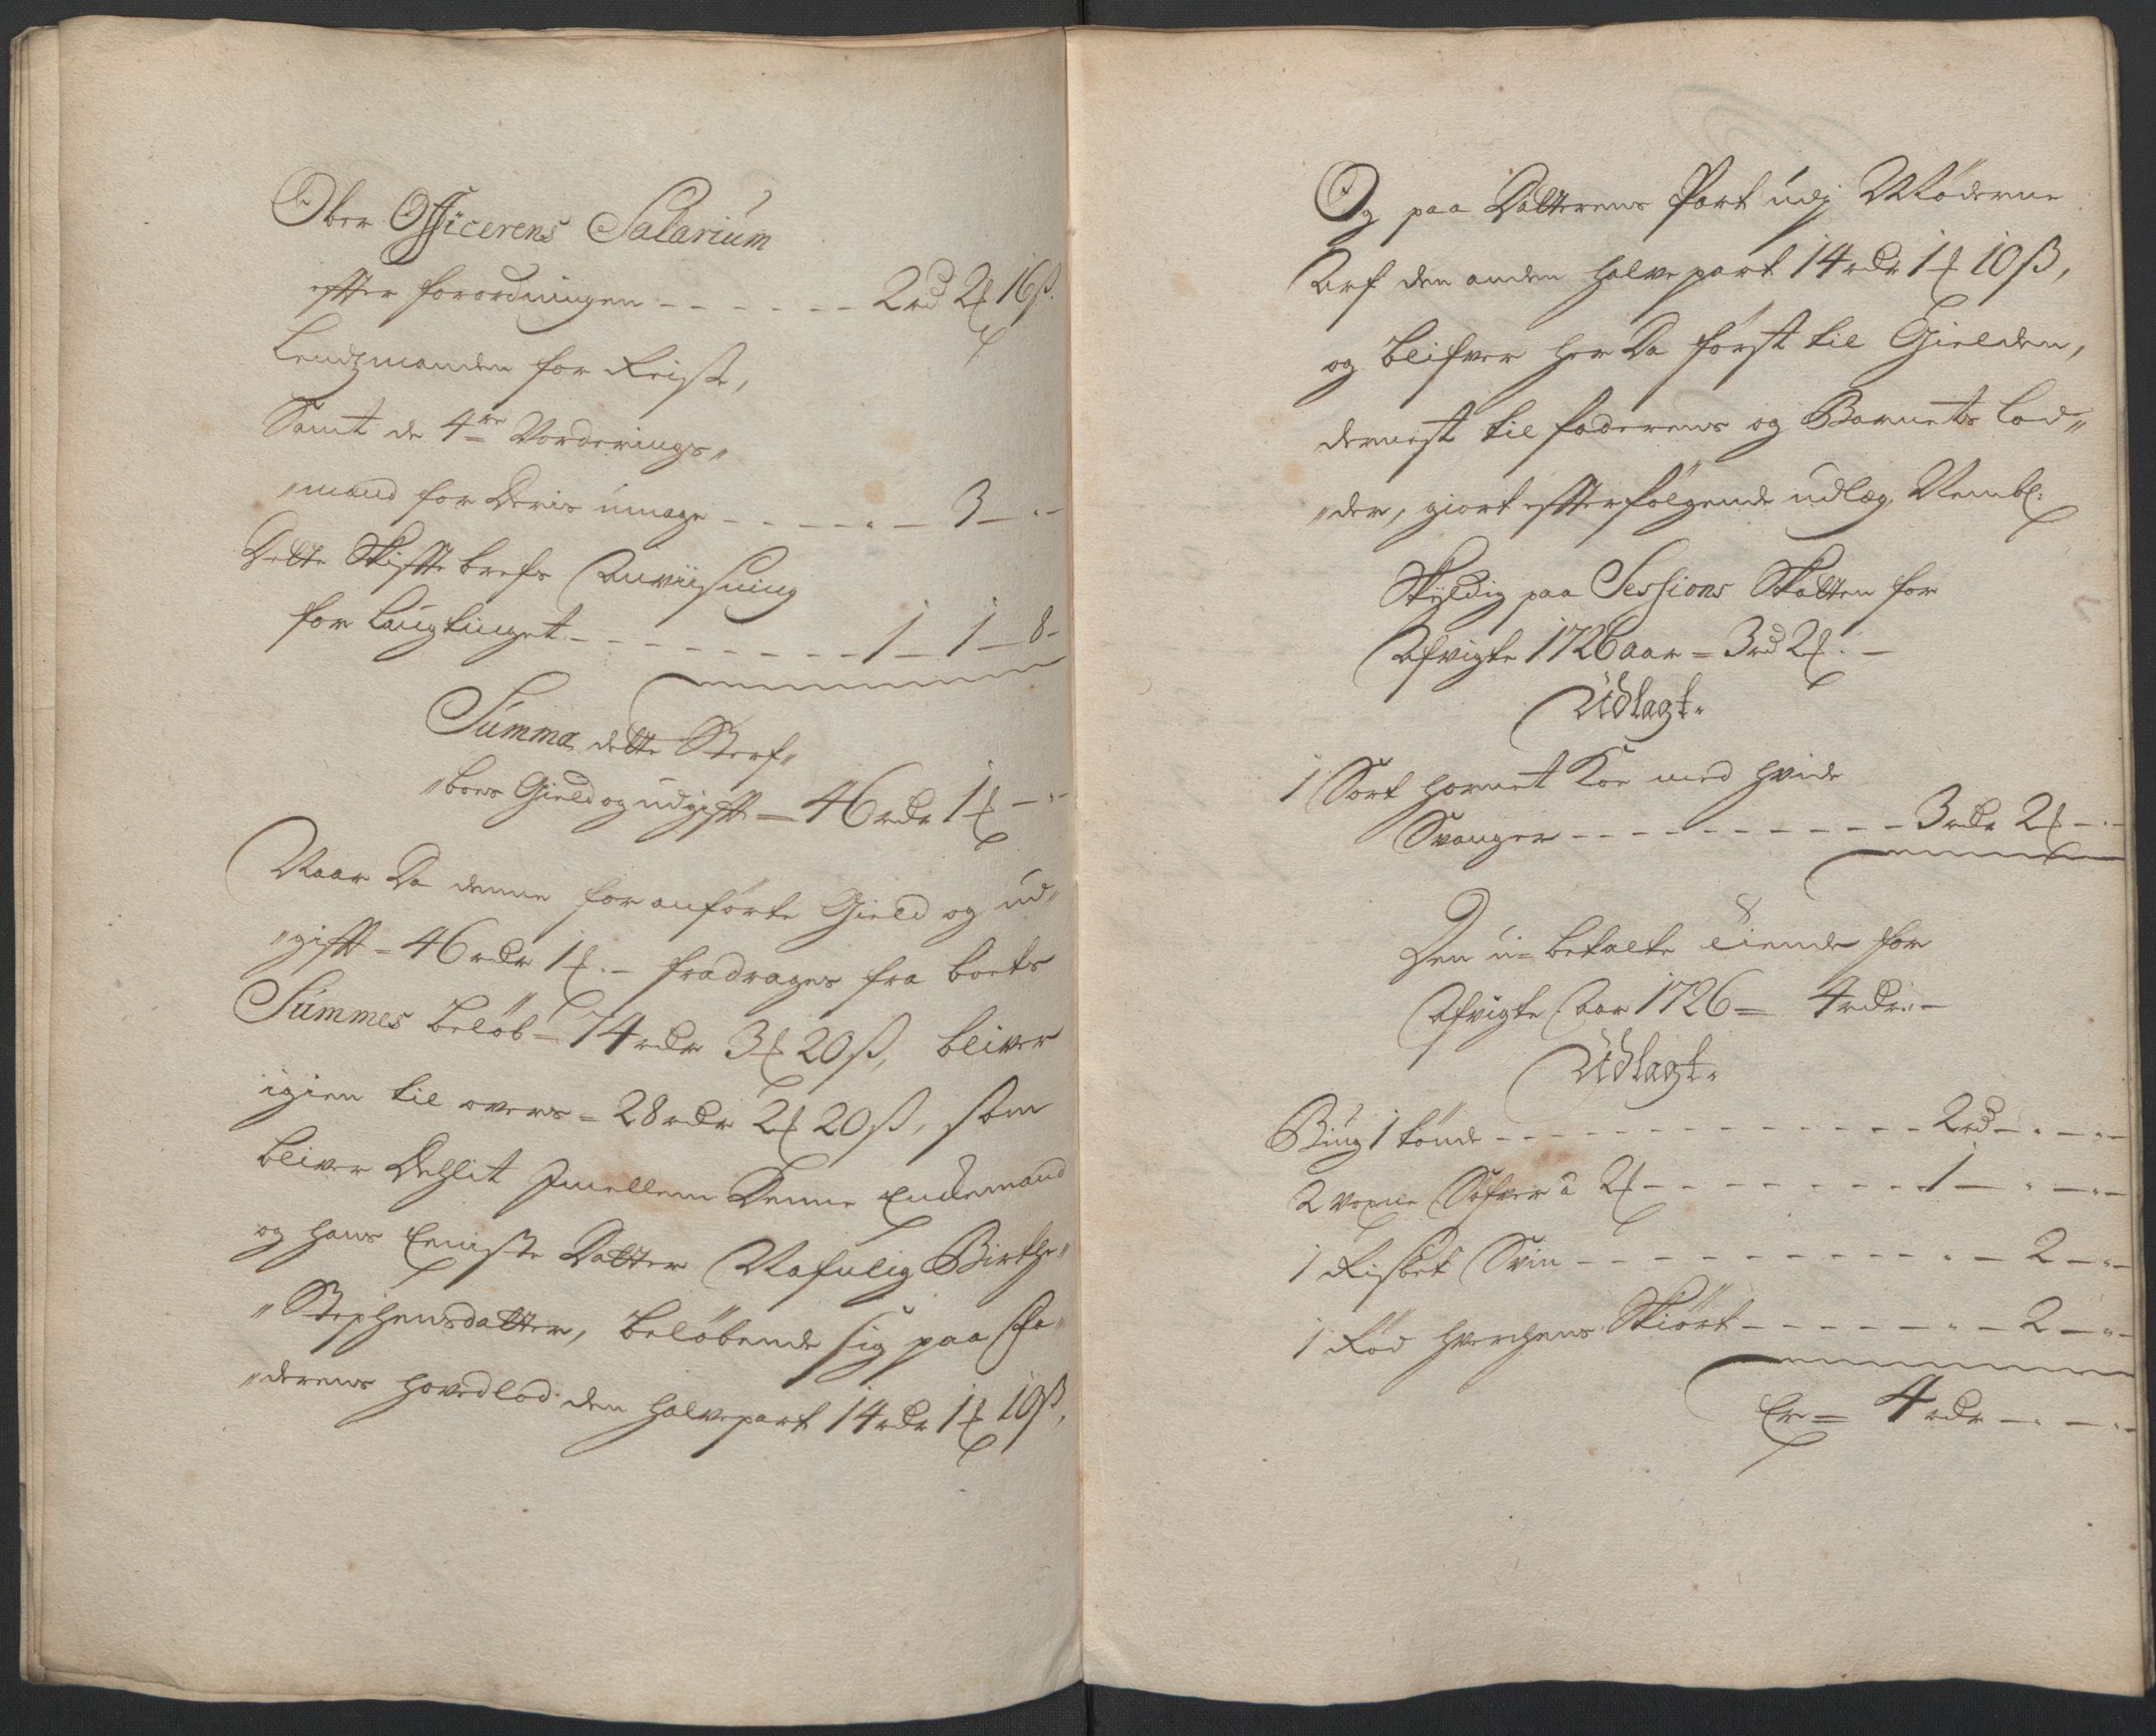 Ober Officerens Salarium
efter forordningen - - - - - - 2 rd 2 ℔ 16 ß.
Lendzmanden for Reise,
Samt de 4re Vorderings„
„mænd for Deris umage - - - - „ - 3 - „ -
Dette Skifttebrefs Anviisning
for Laugtinget - - - - - - - - 1 - 1 - 8 -
Summa dette Sterf„
„boes Gield og udgifft = 46 rdr 1 ℔ - „ -
Naar Da denne foranførte Gield og ud„
„gifft = 46 rdr 1 ℔ . - fradrages fra boets
Summes beløb = 74 rdr 3 ℔ 20 ß, bliver
igien til overs = 28 rdr 2 ℔ 20 ß, som
bliver Dehlit Imellem Denne Enckemand
og hans Eeniste Datter Nafnlig Birthe„
„Stephensdatter, beløbende sig paa Fa„
„derens hovedlod den halvepart 14 rdr 1 ℔ 10 ß,
Og paa Datterens Part udj Møderne
Arf den anden halvepart 14 rdr 1 ℔ 10 ß,
og blifver her Da først til Gielden,
dernest til faderens og Barnets Lod„
„der, giort efterfølgende udlæg, Nembl:
Skyldig paa Sessions Skatten for
Afvigte 1726 aar = 3 rd 2 ℔ . -
Udlagt.
1 Sort hornet Koe med hvide
Svanger - - - - - - - - - - 3 rdr 2 ℔ - „ -
Den u=betalte tiende for
Afvigte Aar 1726 = 4 rdr . -
Udlagt.
Biug 1 tønde - - - - - - - - - - - 2 rd - „ - „ -
2 voxne Søfver â 2 ℔ - - - - - - - - 1 - „ - „ -
1 Risbet Sviin - - - - - - - - - „ - 2 - „ -
1 Rød hverchens Skiørt - - - - - „ - 2 - „ -
Er = 4 rdr - „ - „ -